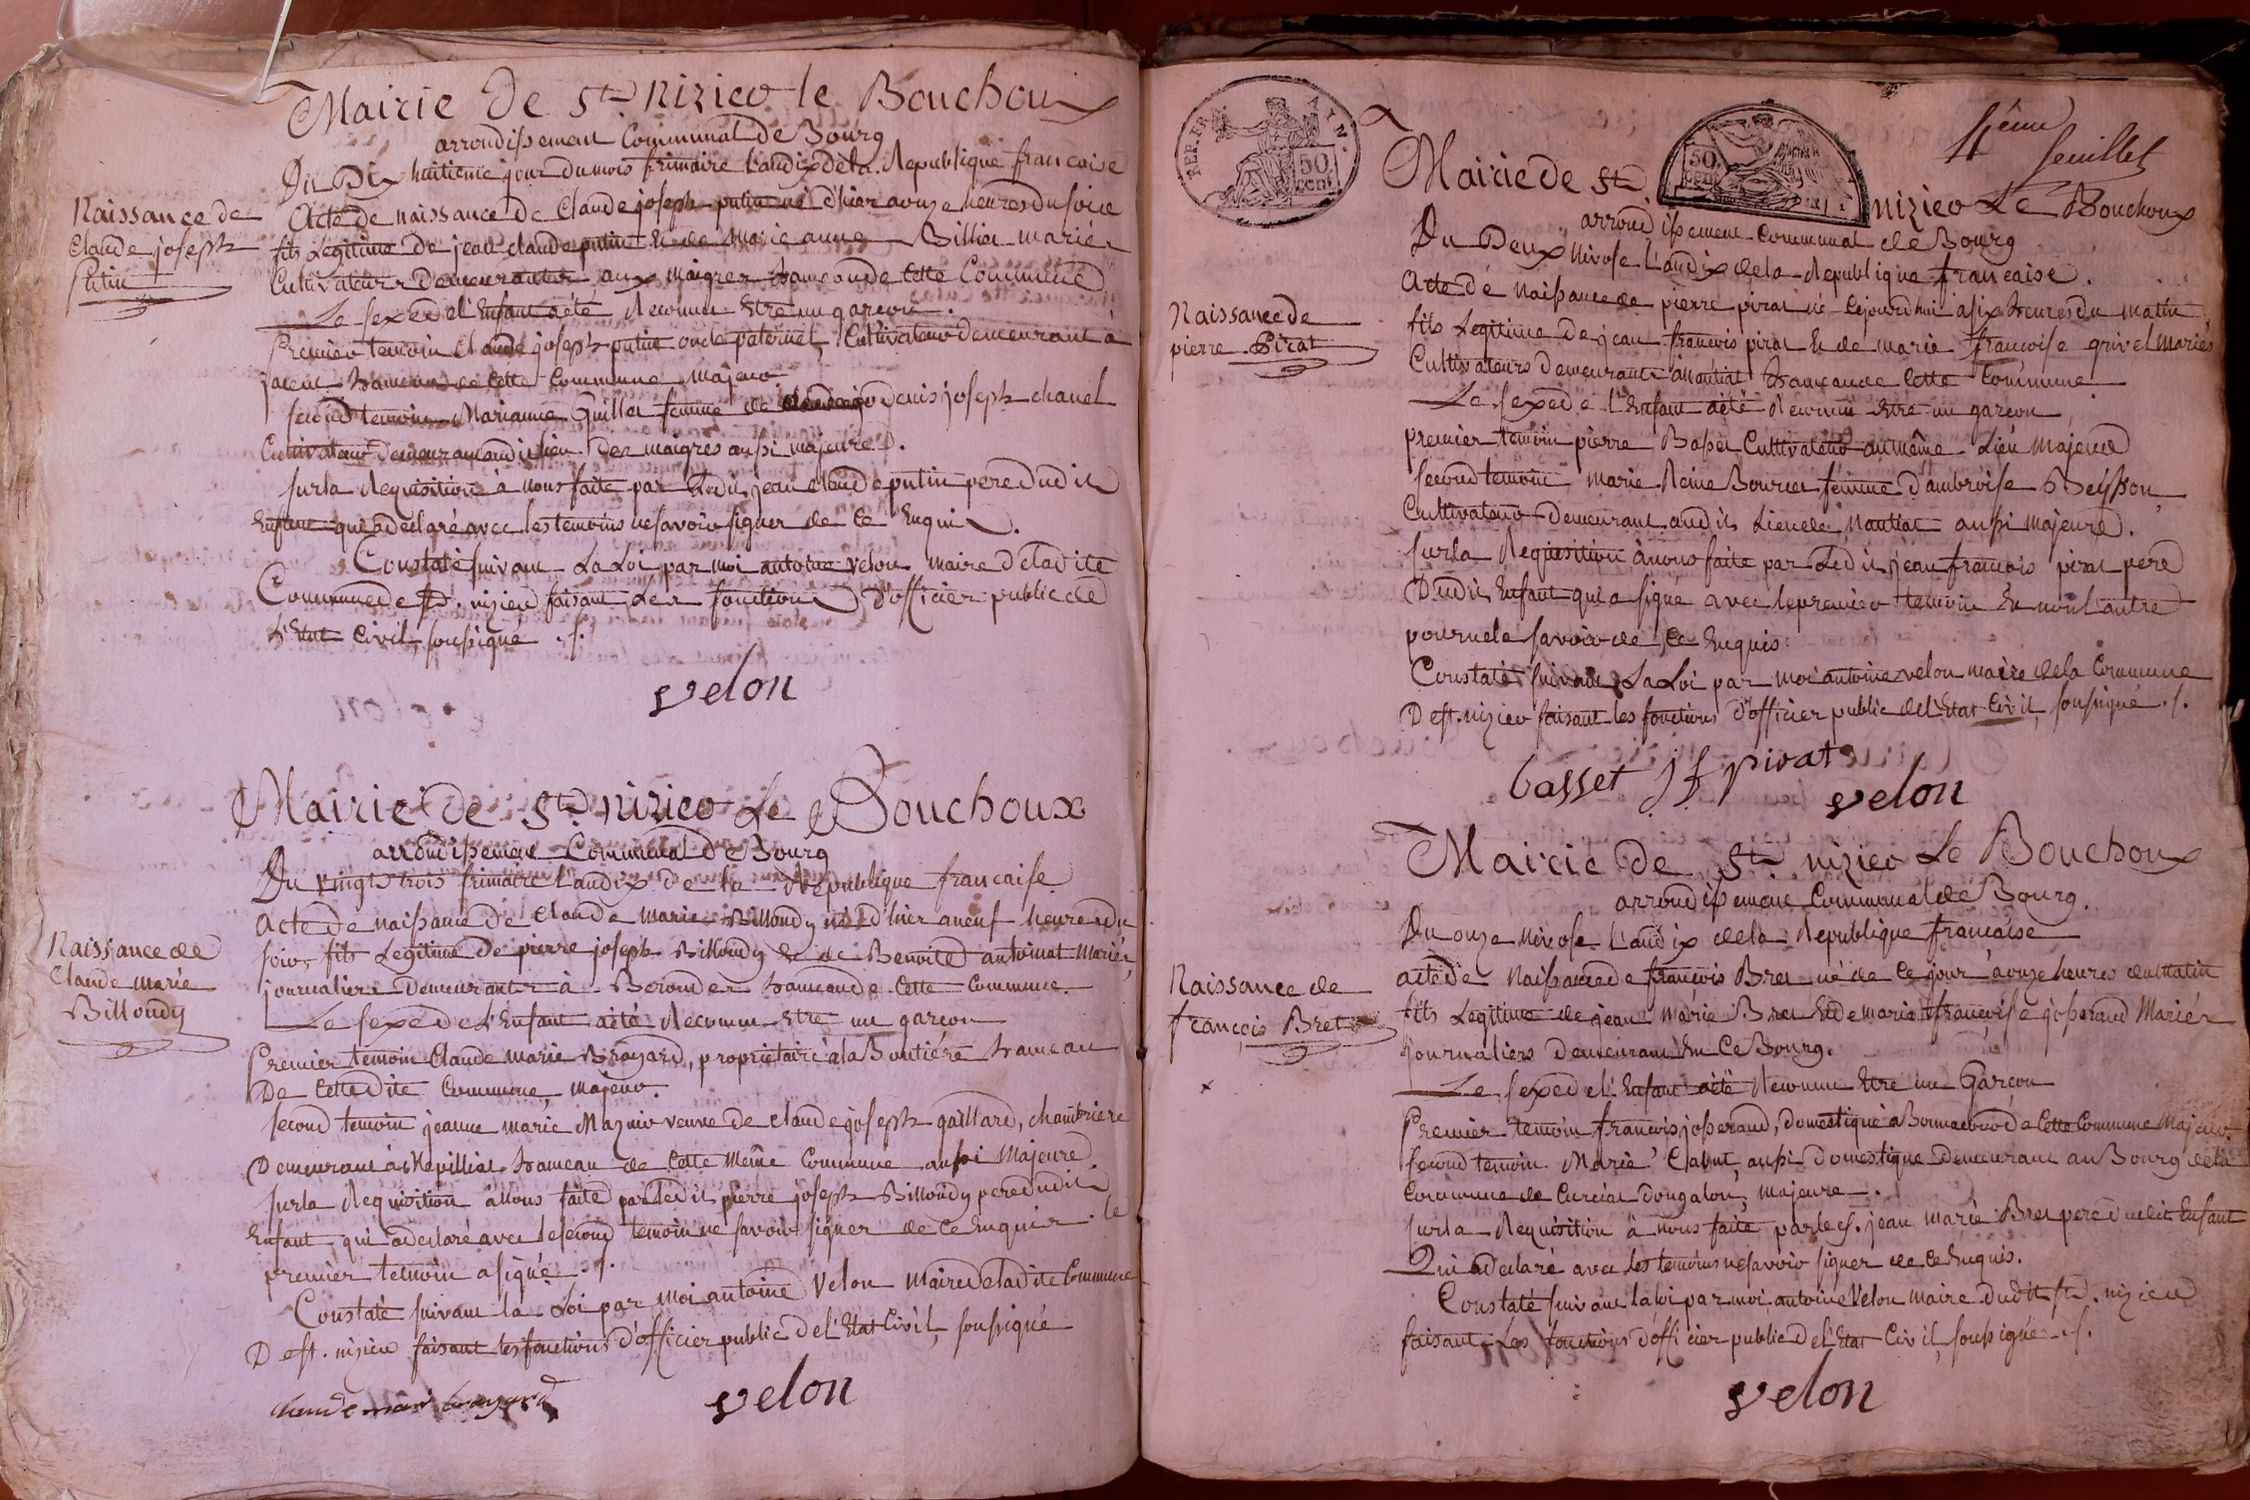 Mairie de St. nizier le Bouchoux
arrondissement Communal de Bourg
Du Dix huitieme jour du mois frimaire L'an dix de la Republique francoise
Naissance de
Claude joseph
Putin
Acte de naissance de Claude joseph putin né d'hier a onze heures du soir
fils Legitime de jean claude putin et de Marie anne Billiet mariés
Cultivateurs Demeurantes aux maigres hameau de Cette Commune
Le sexe de l'Enfant a été Reconnu Etre un garcon.
Premier temoin Claude joseph putin oncle paternel, Cultivateur demeurant à
hameau de Cette Commune Majeur
second temoin Marianne Guillet femme de denis joseph chanel
Cultivateur demeurant audit lieu des maigres aussi majeure.
sur la Requisition à nous faite par Ledit jean claude putin pere dudit
Enfant qui a declaré avec les temoins ne savoir signer de ce Enquis.
Constaté suivant La Loi par moi antoine velon maire de ladite
Commune de St. nizier faisant Les fonctions d'officier public de
L'Etat Civil, soussigné ./.
velon
Mairie de St. nizier Le Bouchoux
arrondissement Communal de Bourg
Du vingt trois frimaire L'an dix de la Republique francaise
Naissance de
Claude marie
Billoudy
Acte de naissance de Claude Marie Billoudy né d'hier a neuf heures du
soir, fils Legitime de pierre joseph Billoudy et de Benoite antoinat Mariés,
journaliers demeurantes à Beroudes hameau de Cette Commune.
Le sexe de L'Enfant a été Reconnu Etre un garcon
Premier temoin Claude marie Broyard, proprietaire à la Boutiére hameau
De Cette dite Commune, majeur.
second temoin jeanne marie Maznio veuve de claude joseph gaillard, chambriere
Demeurant à Chevilliat hameau de Cette Même Commune aussi Majeure
sur la Requisition à Nous faite par Ledit pierre joseph Billoudy pere dudit
Enfant, qui a declaré avec le second temoin ne savoir signer de ce Enquis. le
premier temoin a signé ./.
Constaté suivant la Loi par moi antoine Velon Maire de ladite Commune
De St. nizier faisant les fonctions d'officier public de l'Etat Civil, soussigné
claude marie broyard
velon
REP. FRA. AYN.
50 cent.
50 cen.
4ême
feuillet
Mairie de St. nizier Le Bouchoux
arrondissement Communal de Bourg
Du Deux Nivose L'an dix de la Republique francaise.
Naissance de
pierre Pirat
Acte de Naissance de pierre pirat né Cejourd'hui a six heures du matin
fils Legitime de jean francois pirat et de marie francoise grivel Mariés
Cultivateurs demeurants a Nantiat hameau de Cette Commune.
Le sexe de L'Enfant a été Reconnu Etre un garcon
premier temoin pierre Basset Cultivateur au même Lieu Majeur
second temoin Marie Reine Bourcet femme d'ambroise Beysson,
Cultivateur Demeurant audit Lieu de Nantiat aussi majeure.
sur la Requisition à nous faite par Ledit jean francois pirat pere
Dudit Enfant qui a signé avec le premier temoin et non l'autre
pour ne le savoir de ce Enquis.
Constaté suivant La Loi par moi antoine velon maire de la Commune
De St. nizier faisant les fonctions d'officier public de l'Etat Civil soussigné ./.
basset j f pirat
velon
Mairie de St. nizier Le Bouchoux
arrondissement Communal de Bourg.
Du onze Nivose L'an dix de la Republique francaise
Naissance de
françois Bret
acte de Naissance de francois Bret né de Ce jour à onze heures du Matin
fils Legitime de jean Marie Bret et de marie françoise josserand Mariés
journaliers Demeurant En Ce Bourg.
Le sexe de l'Enfant a été Reconnu Etre un Garcon
Premier temoin francois josserand, domestique à de Cette Commune Majeur.
second temoin Marie aussi Domestique Demeurant au Bourg de la
Commune de Curciat dongalon, majeure.
sur la Requisition à nous faite par le C. jean marie Bret pere dudit Enfant
Qui a declaré avec Les temoins ne savoir signer de ce Enquis.
Constaté suivant la loi par moi antoine Velon maire dudit St. nizier
faisant Les fonctions d'officier public de l'Etat Civil, soussigné ./.
velon